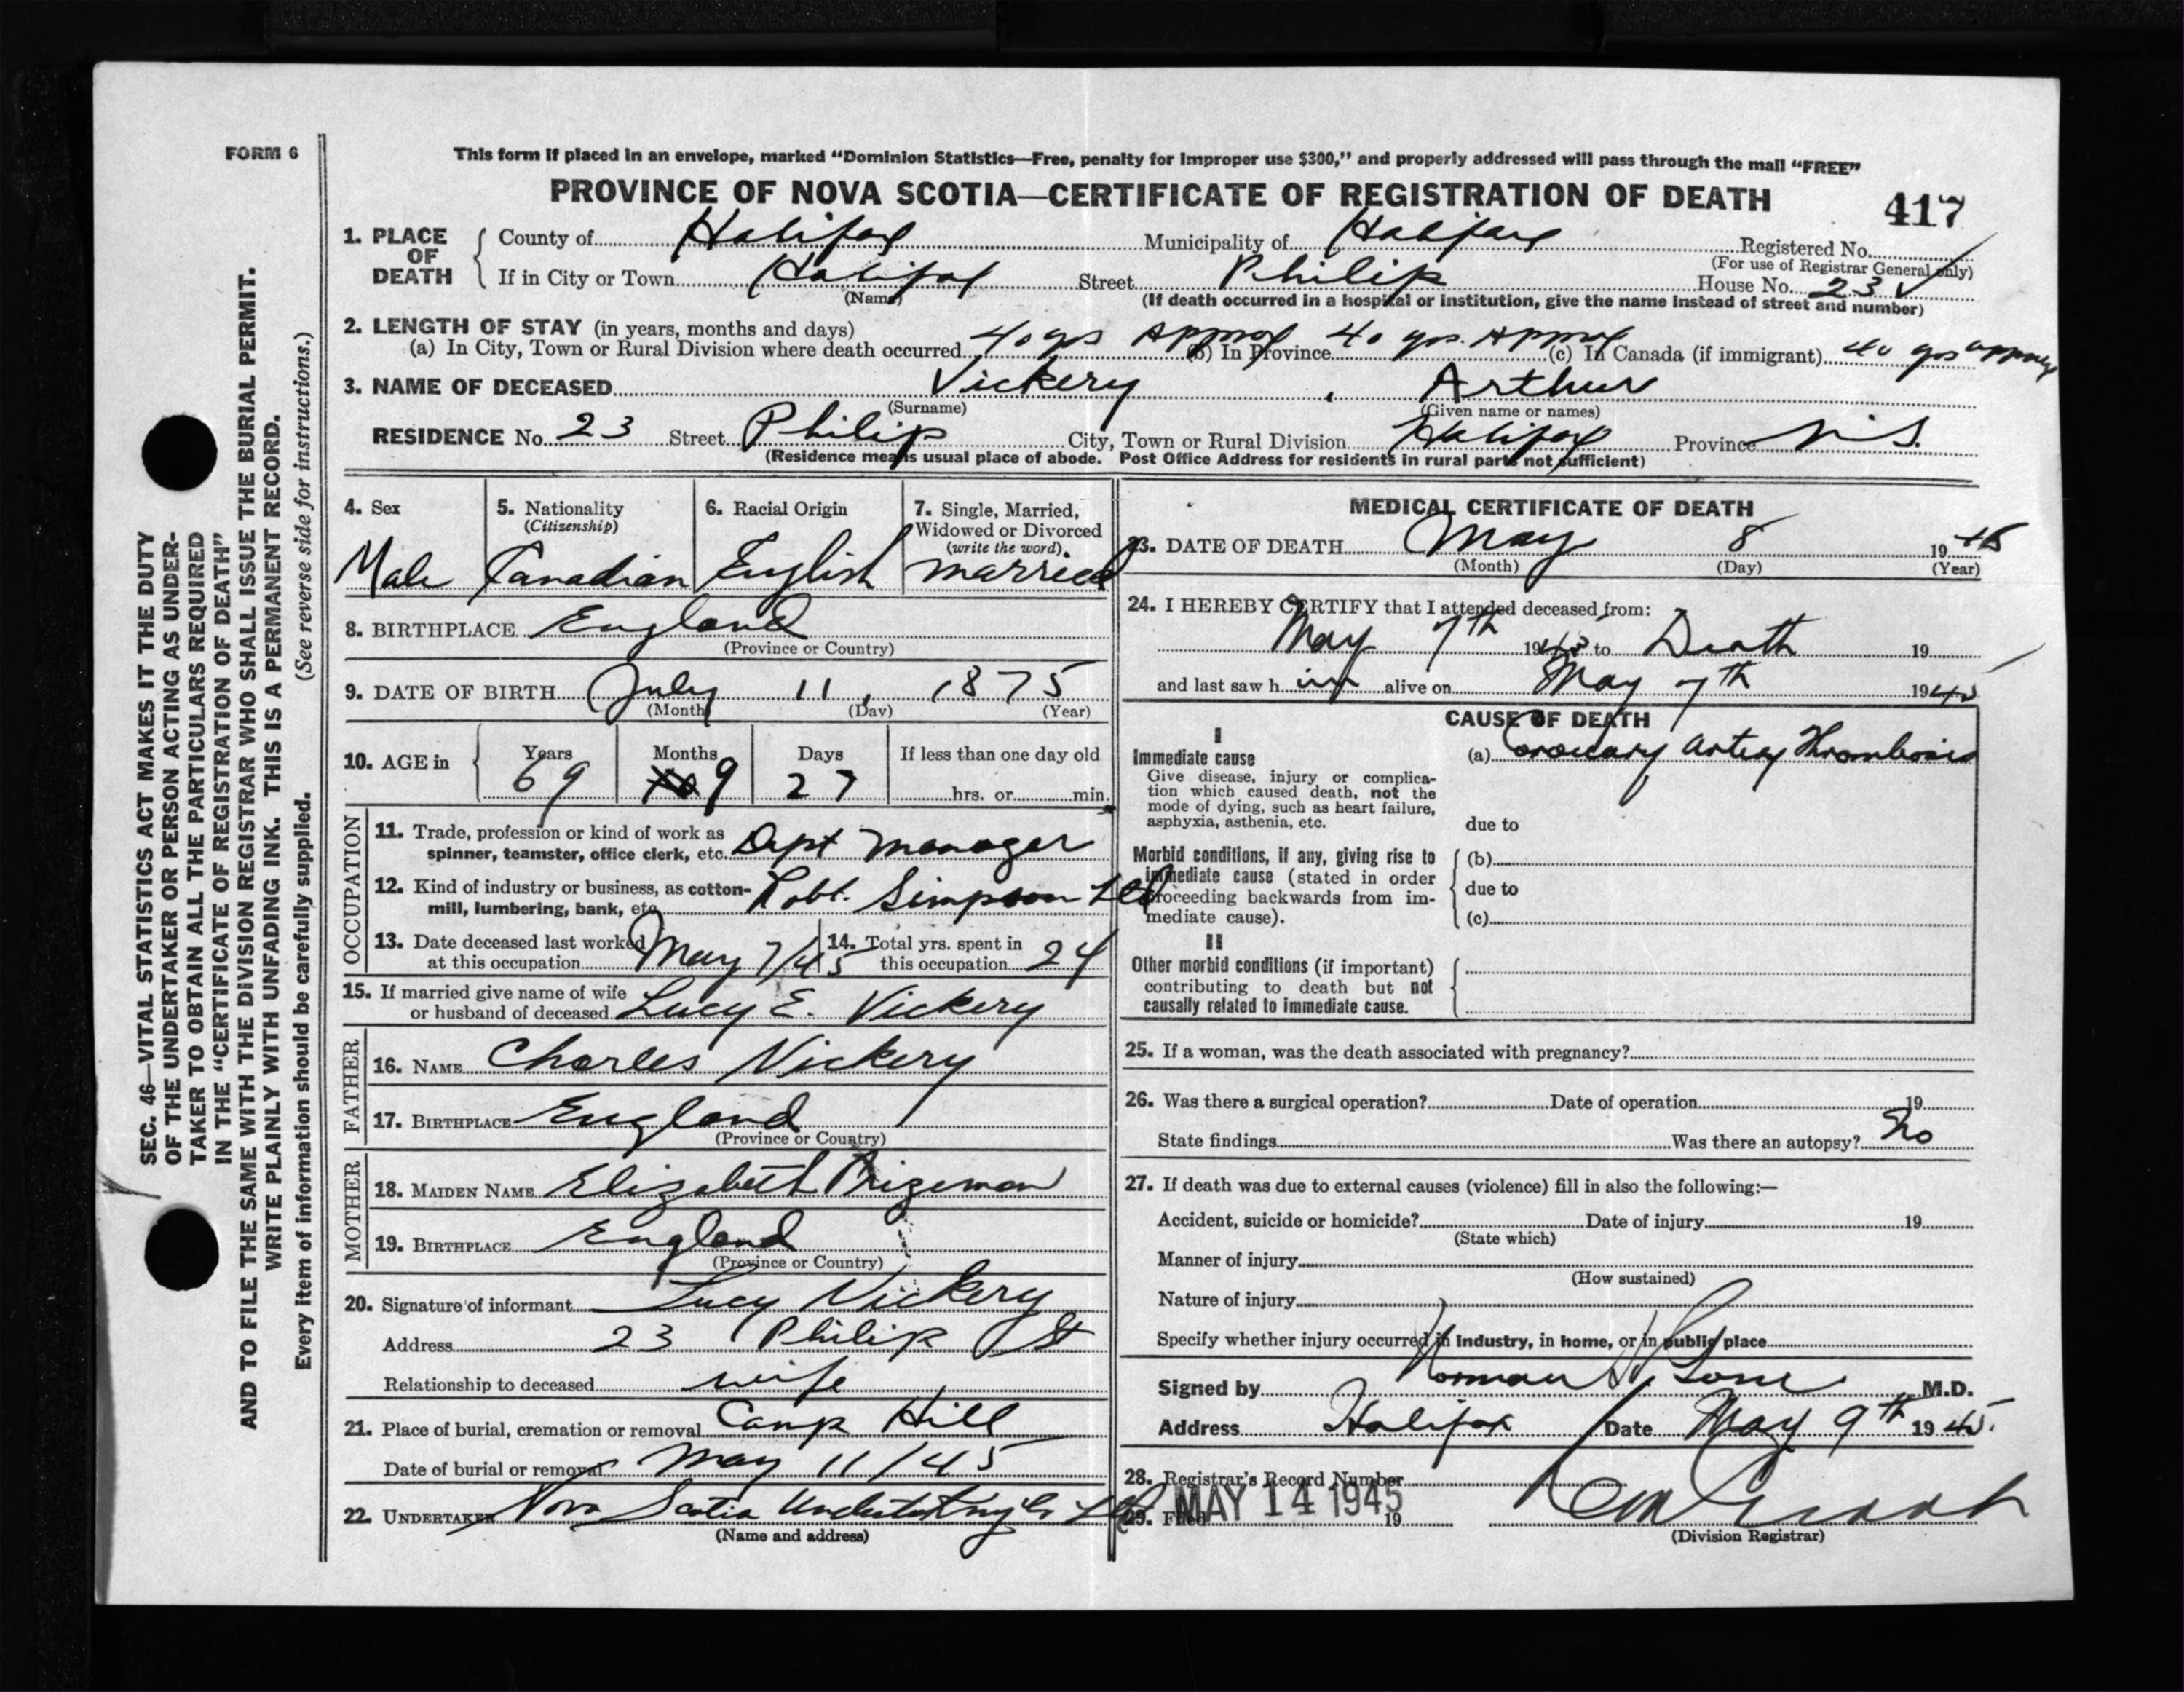 FORM 6
This form if placed in an envelope, marked “Dominion Statistics—Free, penalty for improper use $300,” and properly addressed will pass through the mail “FREE”
PROVINCE OF NOVA SCOTIA—CERTIFICATE OF REGISTRATION OF DEATH
417
1. PLACE OF DEATH
County of Halifax Municipality of Halifax Registered No.
(For use of Registrar General only)
If in City or Town Halifax Street Philip House No. 23
(Name) (If death occurred in a hospital or institution, give the name instead of street and number)
2. LENGTH OF STAY (in years, months and days)
(a) In City, Town or Rural Division where death occurred 40 yrs approx (b) In Province 40 yrs. approx (c) In Canada (if immigrant) 40 yrs approx
3. NAME OF DECEASED Vickery, Arthur
(Surname) (Given name or names)
RESIDENCE No. 23 Street Philip City, Town or Rural Division Halifax Province N.S.
(Residence means usual place of abode. Post Office Address for residents in rural parts not sufficient)
4. Sex
Male
5. Nationality
(Citizenship)
Canadian
6. Racial Origin
English
7. Single, Married,
Widowed or Divorced
(write the word).
married
8. BIRTHPLACE England
(Province or Country)
9. DATE OF BIRTH July 11, 1875
(Month) (Day) (Year)
10. AGE in
Years Months Days If less than one day old
69 9 27 hrs. or min.
OCCUPATION
11. Trade, profession or kind of work as
spinner, teamster, office clerk, etc. Dept manager
12. Kind of industry or business, as cotton-
mill, lumbering, bank, etc. Robt. Simpson Ltd
13. Date deceased last worked
at this occupation May 7/45
14. Total yrs. spent in
this occupation 24
15. If married give name of wife
or husband of deceased Lucy E. Vickery
FATHER
16. NAME Charles Vickery
17. BIRTHPLACE England
(Province or Country)
MOTHER
18. MAIDEN NAME Elizabeth Prizeman
19. BIRTHPLACE England
(Province or Country)
20. Signature of informant Lucy Vickery
Address 23 Philip St
Relationship to deceased wife
21. Place of burial, cremation or removal Camp Hill
Date of burial or removal May 11/45
22. UNDERTAKER Nova Scotia Undertaking Co Ltd
(Name and address)
MEDICAL CERTIFICATE OF DEATH
23. DATE OF DEATH May 8 1945
(Month) (Day) (Year)
24. I HEREBY CERTIFY that I attended deceased from:
May 7th 1945 to Death 19
and last saw him alive on May 7th 1945
CAUSE OF DEATH
I
Immediate cause
Give disease, injury or complica-
tion which caused death, not the
mode of dying, such as heart failure,
asphyxia, asthenia, etc.
(a) Coronary Artery Thrombosis
due to
Morbid conditions, if any, giving rise to
immediate cause (stated in order
proceeding backwards from im-
mediate cause).
(b)
due to
(c)
II
Other morbid conditions (if important)
contributing to death but not
causally related to immediate cause.
25. If a woman, was the death associated with pregnancy?
26. Was there a surgical operation? Date of operation 19
State findings Was there an autopsy? No
27. If death was due to external causes (violence) fill in also the following:—
Accident, suicide or homicide? Date of injury 19
(State which)
Manner of injury
(How sustained)
Nature of injury
Specify whether injury occurred in industry, in home, or in public place
Signed by Norman M.D.
Address Halifax Date May 9th 1945.
28. Registrar's Record Number
29. Filed MAY 14 1945 19
(Division Registrar)
SEC. 46—VITAL STATISTICS ACT MAKES IT THE DUTY
OF THE UNDERTAKER OR PERSON ACTING AS UNDER-
TAKER TO OBTAIN ALL THE PARTICULARS REQUIRED
IN THE “CERTIFICATE OF REGISTRATION OF DEATH”
AND TO FILE THE SAME WITH THE DIVISION REGISTRAR WHO SHALL ISSUE THE BURIAL PERMIT.
WRITE PLAINLY WITH UNFADING INK. THIS IS A PERMANENT RECORD.
Every item of information should be carefully supplied. (See reverse side for instructions.)